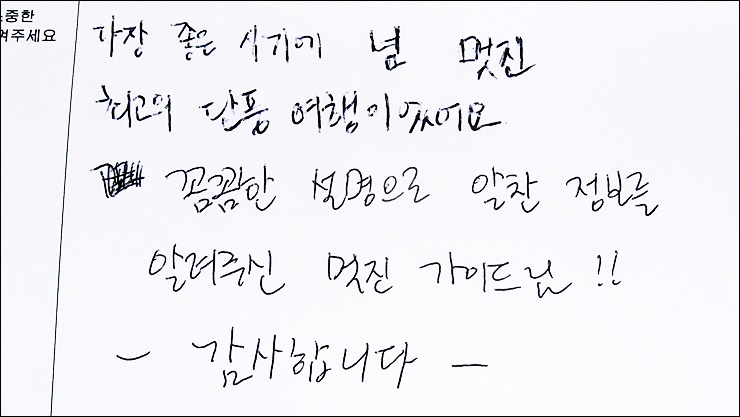 소중한
겨주세요
가장 좋은 시기에 넘 멋진
최고의 단풍 여행이었어요
꼼꼼한 설명으로 알찬 정보를
알려주신 멋진 가이드님 !!
- 감사합니다 -